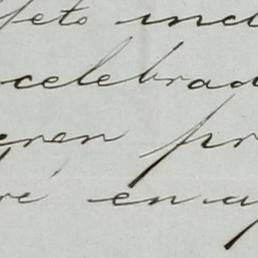 feto ind
celebrad
gren pr
ré en